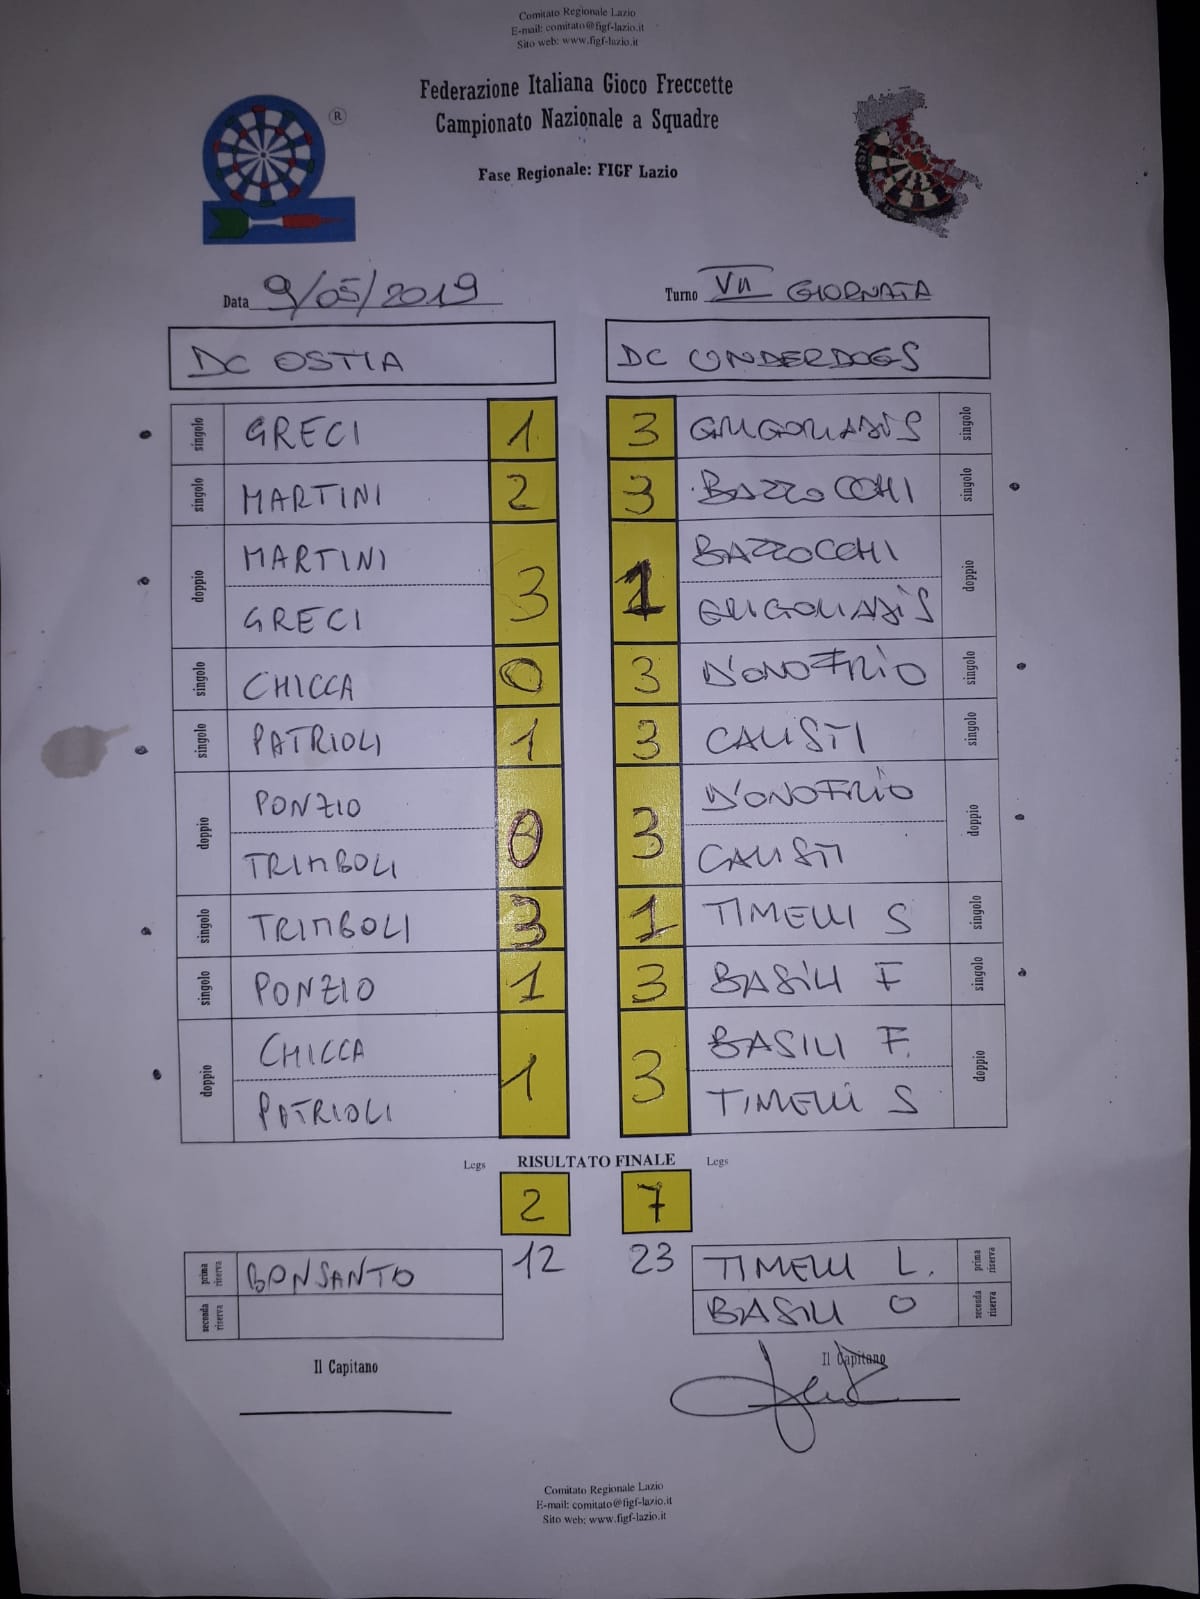 Comitato Regionale Lazio
E-mail: comitato@figf-lazio.it
Sito web: www.figf-lazio.it
Federazione Italiana Gioco Freccette
Campionato Nazionale a Squadre
Fase Regionale: FIGF Lazio
®
Data 9/05/2019 Turno VII GIORNATA
DC OSTIA DC UNDERDOGS
singolo GRECI 1 3 GRIGORIADIS singolo
singolo MARTINI 2 3 BAZZOCCHI singolo
MARTINI BAZZOCCHI
doppio 3 1 doppio
GRECI GRIGORIADIS
singolo CHICCA 0 3 D'ONOFRIO singolo
singolo PATRIOLI 1 3 CALISTI singolo
PONZIO D'ONOFRIO
doppio 0 3 doppio
TRIMBOLI CALISTI
singolo TRIMBOLI 3 1 TIMELLI S singolo
singolo PONZIO 1 3 BASILI F singolo
CHICCA BASILI F.
doppio 1 3 doppio
PATRIOLI TIMELLI S
Legs RISULTATO FINALE Legs
2 7
12 23
prima riserva BONSANTO TIMELLI L. prima riserva
seconda riserva BASILI O seconda riserva
Il Capitano Il Capitano
Comitato Regionale Lazio
E-mail: comitato@figf-lazio.it
Sito web: www.figf-lazio.it